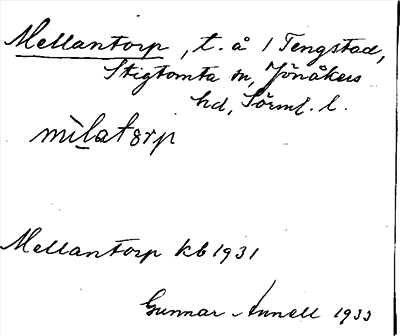 Mellantorp, t. å 1 Tengstad,
Stigtomta sn, Jönåkers
hd, Sörml. l.
mìlatørp
Mellantorp kb 1931
Gunnar Annell 1933